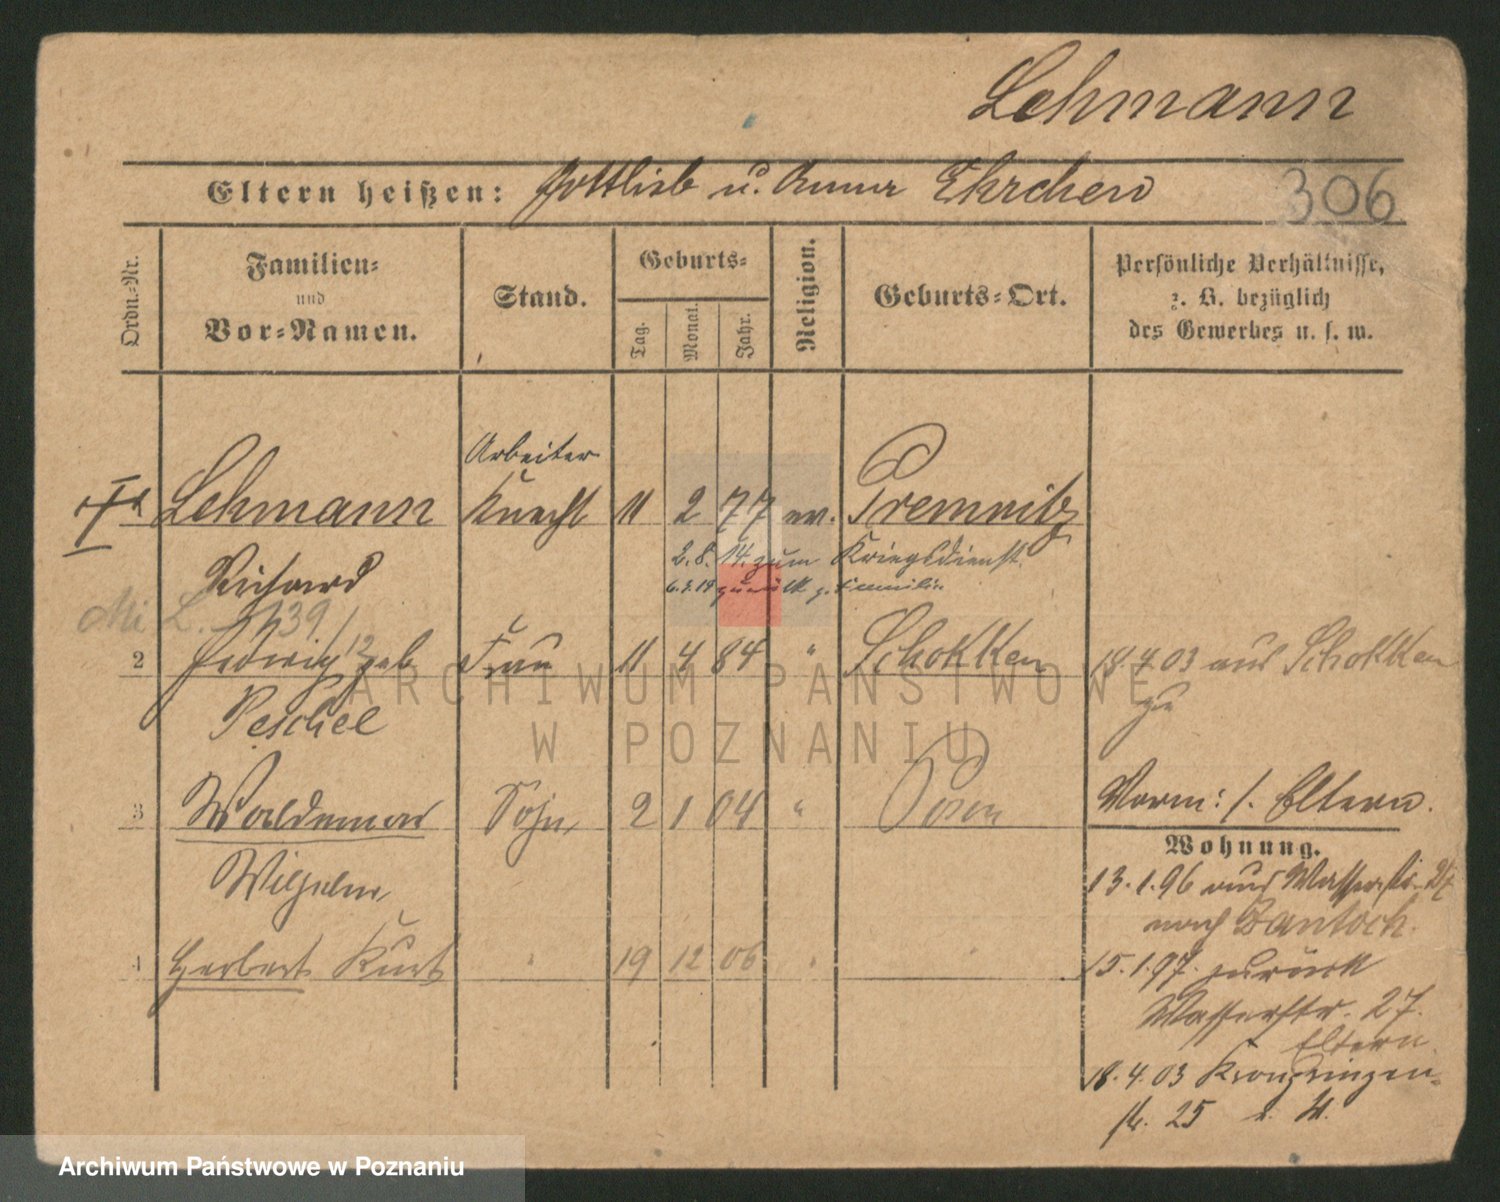 Lehmann
Eltern heißen: Gottlieb u. Anna Ehrchen
306
Ordn.-Nr.
Familien-
und
Vor-Namen.
Stand.
Geburts-
Tag.
Monat.
Jahr.
Religion.
Geburts-Ort.
Persönliche Verhältnisse,
z. B. bezüglich
des Gewerbes u. s. w.
Arbeiter
Lehmann Knecht 11 2 77 ev. Premnitz
2.8.14. zum Kriegsdienst
Richard
zurück z. Familie
39/
2 Hedwig geb Frau 11 4 84 " Schokken 18.4.03 aus Schokken
zu
Peschel
3 Waldemar Sohn 2 1 04 " Posen
Vorm: s. Eltern.
Wohnung.
Wilhelm
13.1.96 aus Wasserstr. 27
nach Zantoch.
4 Herbert Kurt " 19 12 06 " "
15.1.97. zurück
Wasserstr. 27.
Eltern
18.4.03 Kronprinzen-
str. 25
ARCHIWUM PAŃSTWOWE
W POZNANIU
Archiwum Państwowe w Poznaniu